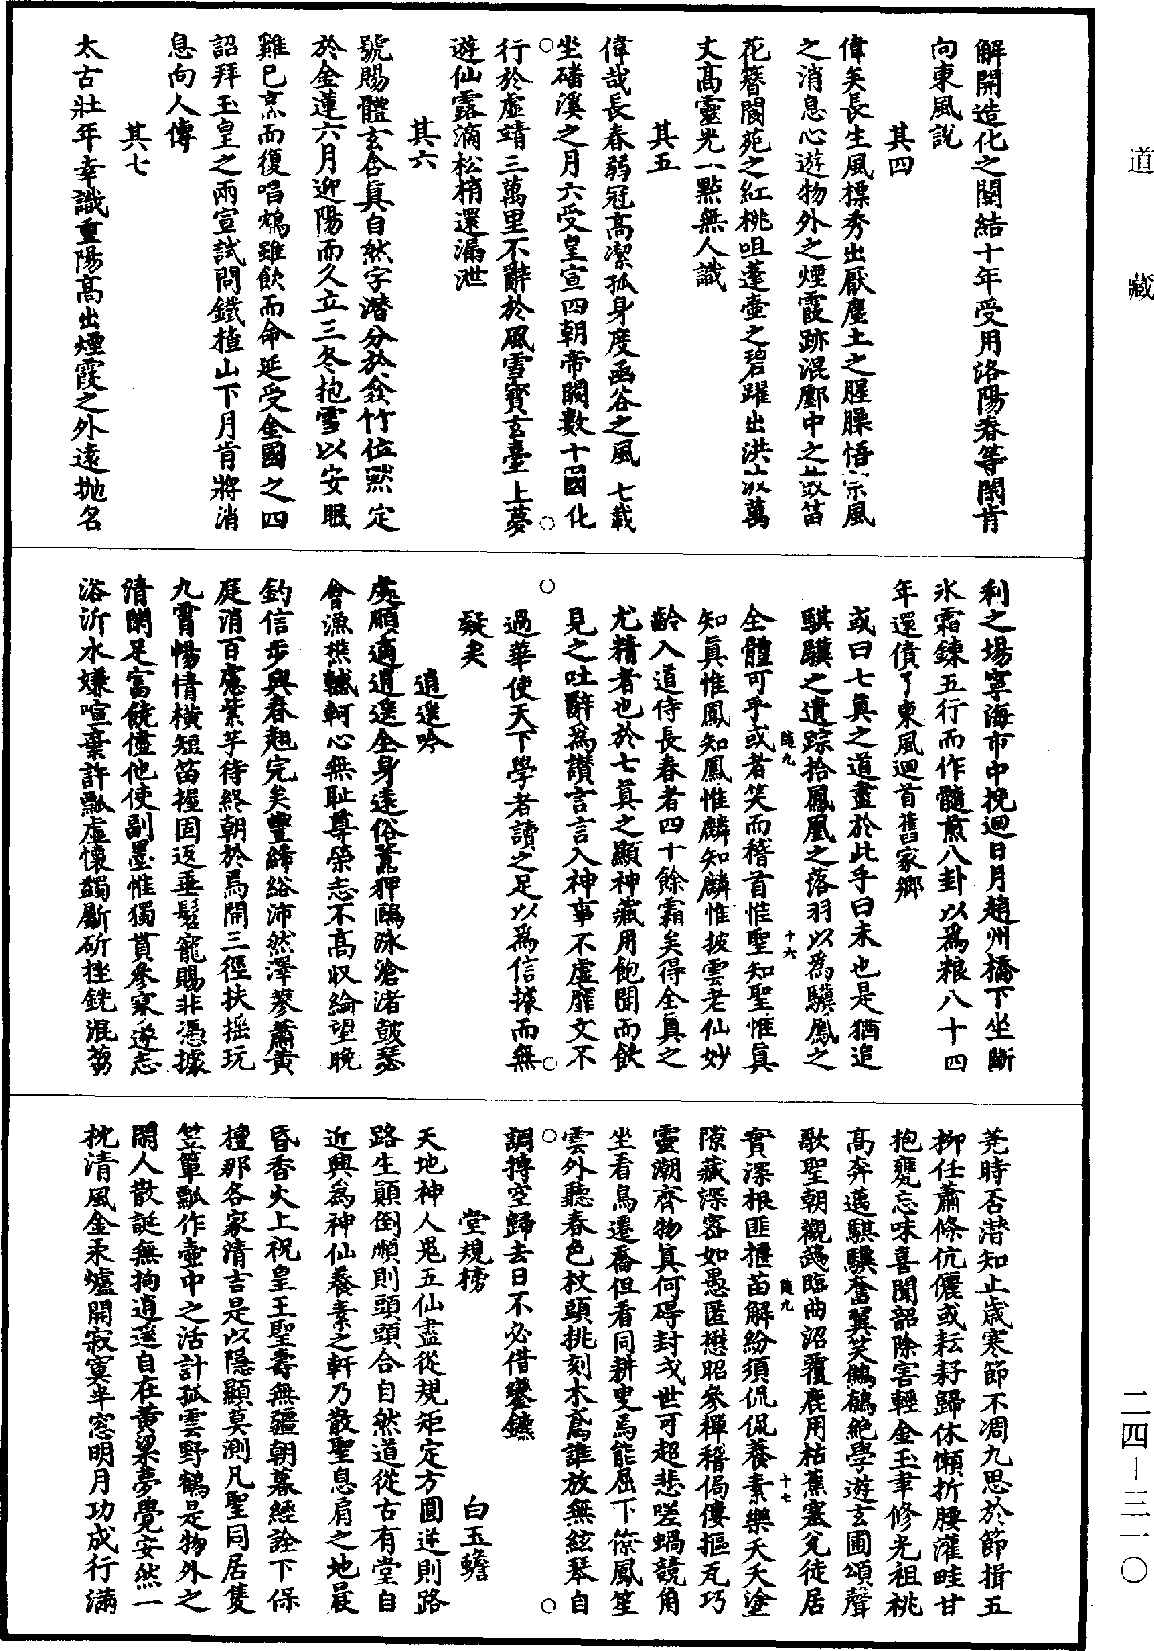 道藏
解開造化之關結十年受用洛陽春等閑肯
向東風說
其四
偉矣長生風標秀出厭塵土之腥臊悟宗風
之消息心遊物外之煙霞跡混鄽中之鼓笛
花簪閬苑之紅桃咀蓬壺之碧躍出洪波萬
丈高靈光一點無人識
其五
偉哉長春弱冠高潔孤身度函谷之風七載
坐磻溪之月六受皇宣四朝帝闕數十國化
行於虛靖三萬里不辭於風雪寶玄臺上夢
遊仙露滴松梢還漏泄
其六
號賜體玄含真自然字潛分於竹位默定
於金蓮六月迎陽而久立三冬抱雪以安眠
雞已烹而復唱鴆雖飲而命延受金國之四
詔拜玉皇之兩宣試問鐵楂山下月肯將消
息向人傳
其七
太古壯年幸識重陽高出煙霞之外遠拋名
利之場寧海市中挽迴日月趙州橋下坐斷
氷霜鍊五行而作髓煎八卦以為粮八十四
年還債了東風迴首舊家鄉
或曰七真之道盡於此乎曰未也是猶追
騏驥之遺踪拾鳳凰之落羽以為驥鳳之
隨九
十六
全體可乎或者笑而稽首惟聖知聖惟真
知真惟鳳知鳳惟麟知麟惟披雲老仙妙
齡入道侍長春者四十餘霜矣得全真之
尤精者也於七真之顯神藏用飽聞而飫
見之吐辭為讚言言入神事不虛靡文不
過華使天下學者讀之足以為信據而無
疑矣
逍遥吟
處順適逍遥全身遠俗鷖狎鷗泳滄渚鼓瑟
會漁樵轗軻心無恥尊榮志不高收綸望晚
釣信步興春起完矣豐絺綌沛然澤蓼蕭黃
庭消百慮紫芋待終朝於焉開三徑扶摇玩
九霄暢情橫短笛握固返垂髫寵賜非憑據
清閑足富饒儘他使副墨惟獨貫參寥遂志
浴沂水嫌喧棄許瓢虛懷蠲斵斫挫銳混芻
蕘時否潛知止歲寒節不凋九思於節揖五
柳任蕭條伉儷或耘耔歸休懶折腰灌畦甘
抱甕忘味喜聞韶除害輕金玉聿修光祖祧
高奔邁騏驥奮翼笑鵷鶴絶學遊玄圃頌聲
歌聖朝觀鵡臨曲沼覆鹿用枯蕉塞兊徒居
隨九
十七
實深根匪揠苗解紛須侃侃養素樂夭夭塗
隙藏深密如愚匿懋昭參禪稽傴僂摳瓦巧
靈潮齊物真何碍封戈世可超悲嗟蝸競角
坐看鳥遷喬但看同耕叟焉能屈下僚鳳笙
雲外聽春色杖頭挑刻木鳶誰放無絃琴自
調摶空歸去日不必借鑾鑣
堂規榜
白玉蟾
天地神人鬼五仙盡從規矩定方圓逆則路
路生顛倒順則頭頭合自然道從古有堂自
近興為神仙養素之軒乃散聖息肩之地晨
昏香火上祝皇王聖壽無疆朝暮經詮下保
檀那各家清吉是以隱顯莫測凡聖同居隻
笠簞瓢作壺中之活計孤雲野鶴是物外之
閑人散誕無拘逍遥自在黃粱夢覺安然一
枕清風金汞爐開寂寞半窓明月功成行滿
二四—三一〇